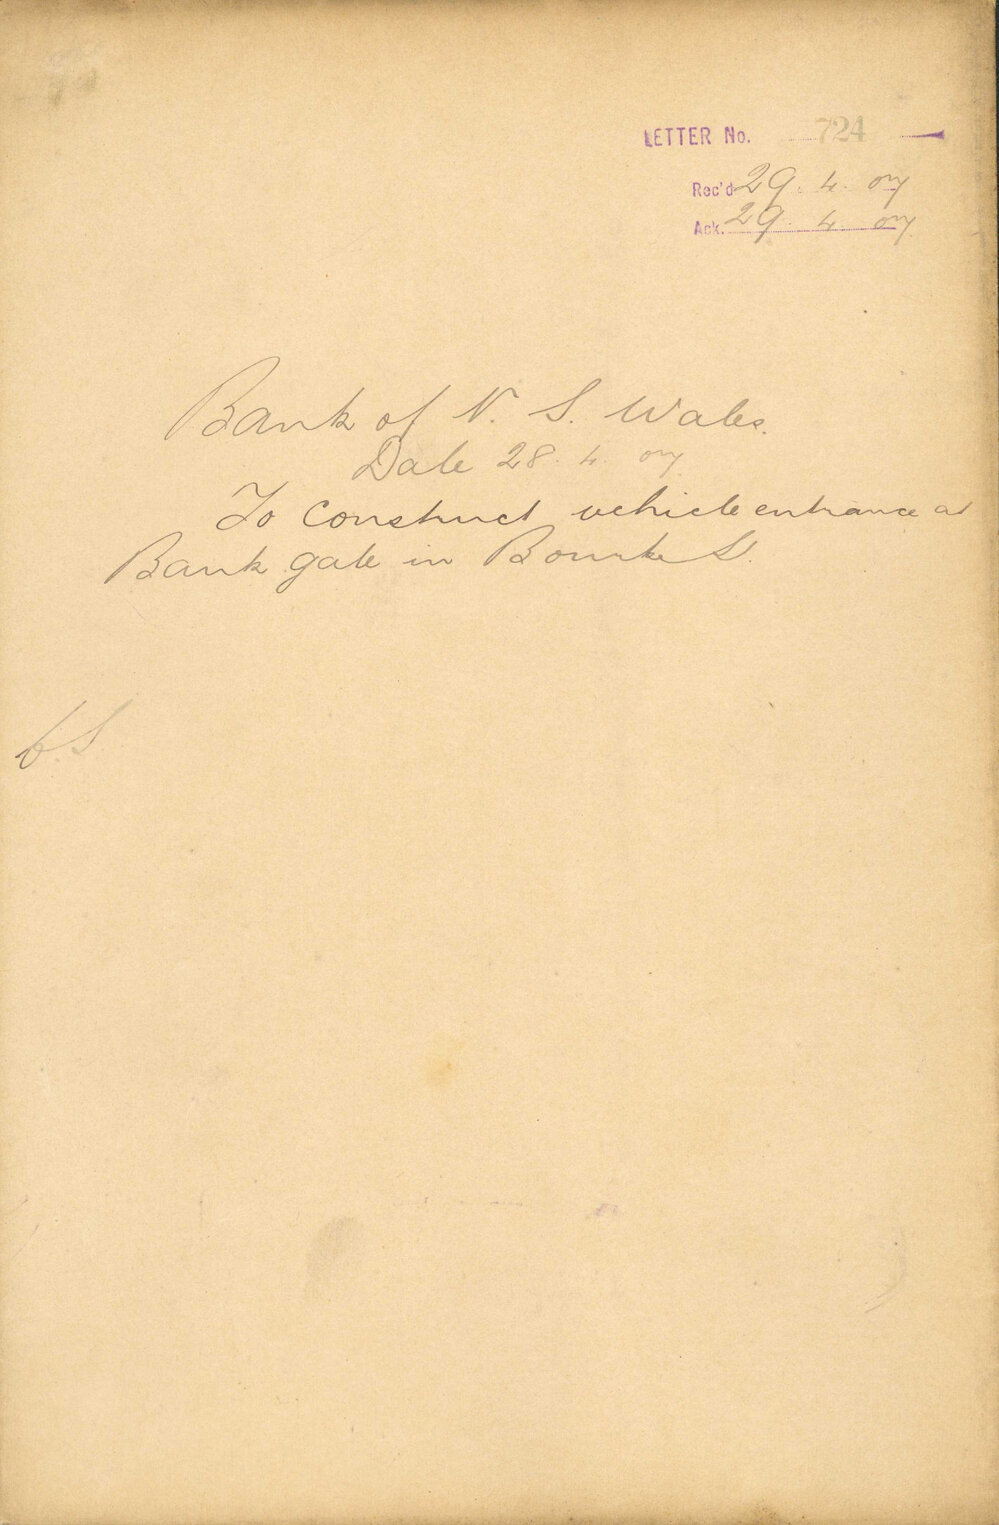 LETTER No. 724
Rec'd 29. 4. 07
Ack. 29. 4. 07
Bank of N. S. Wales.
Date 28. 4. 07
To construct vehicle entrance at
Bank gate in Bourke St.